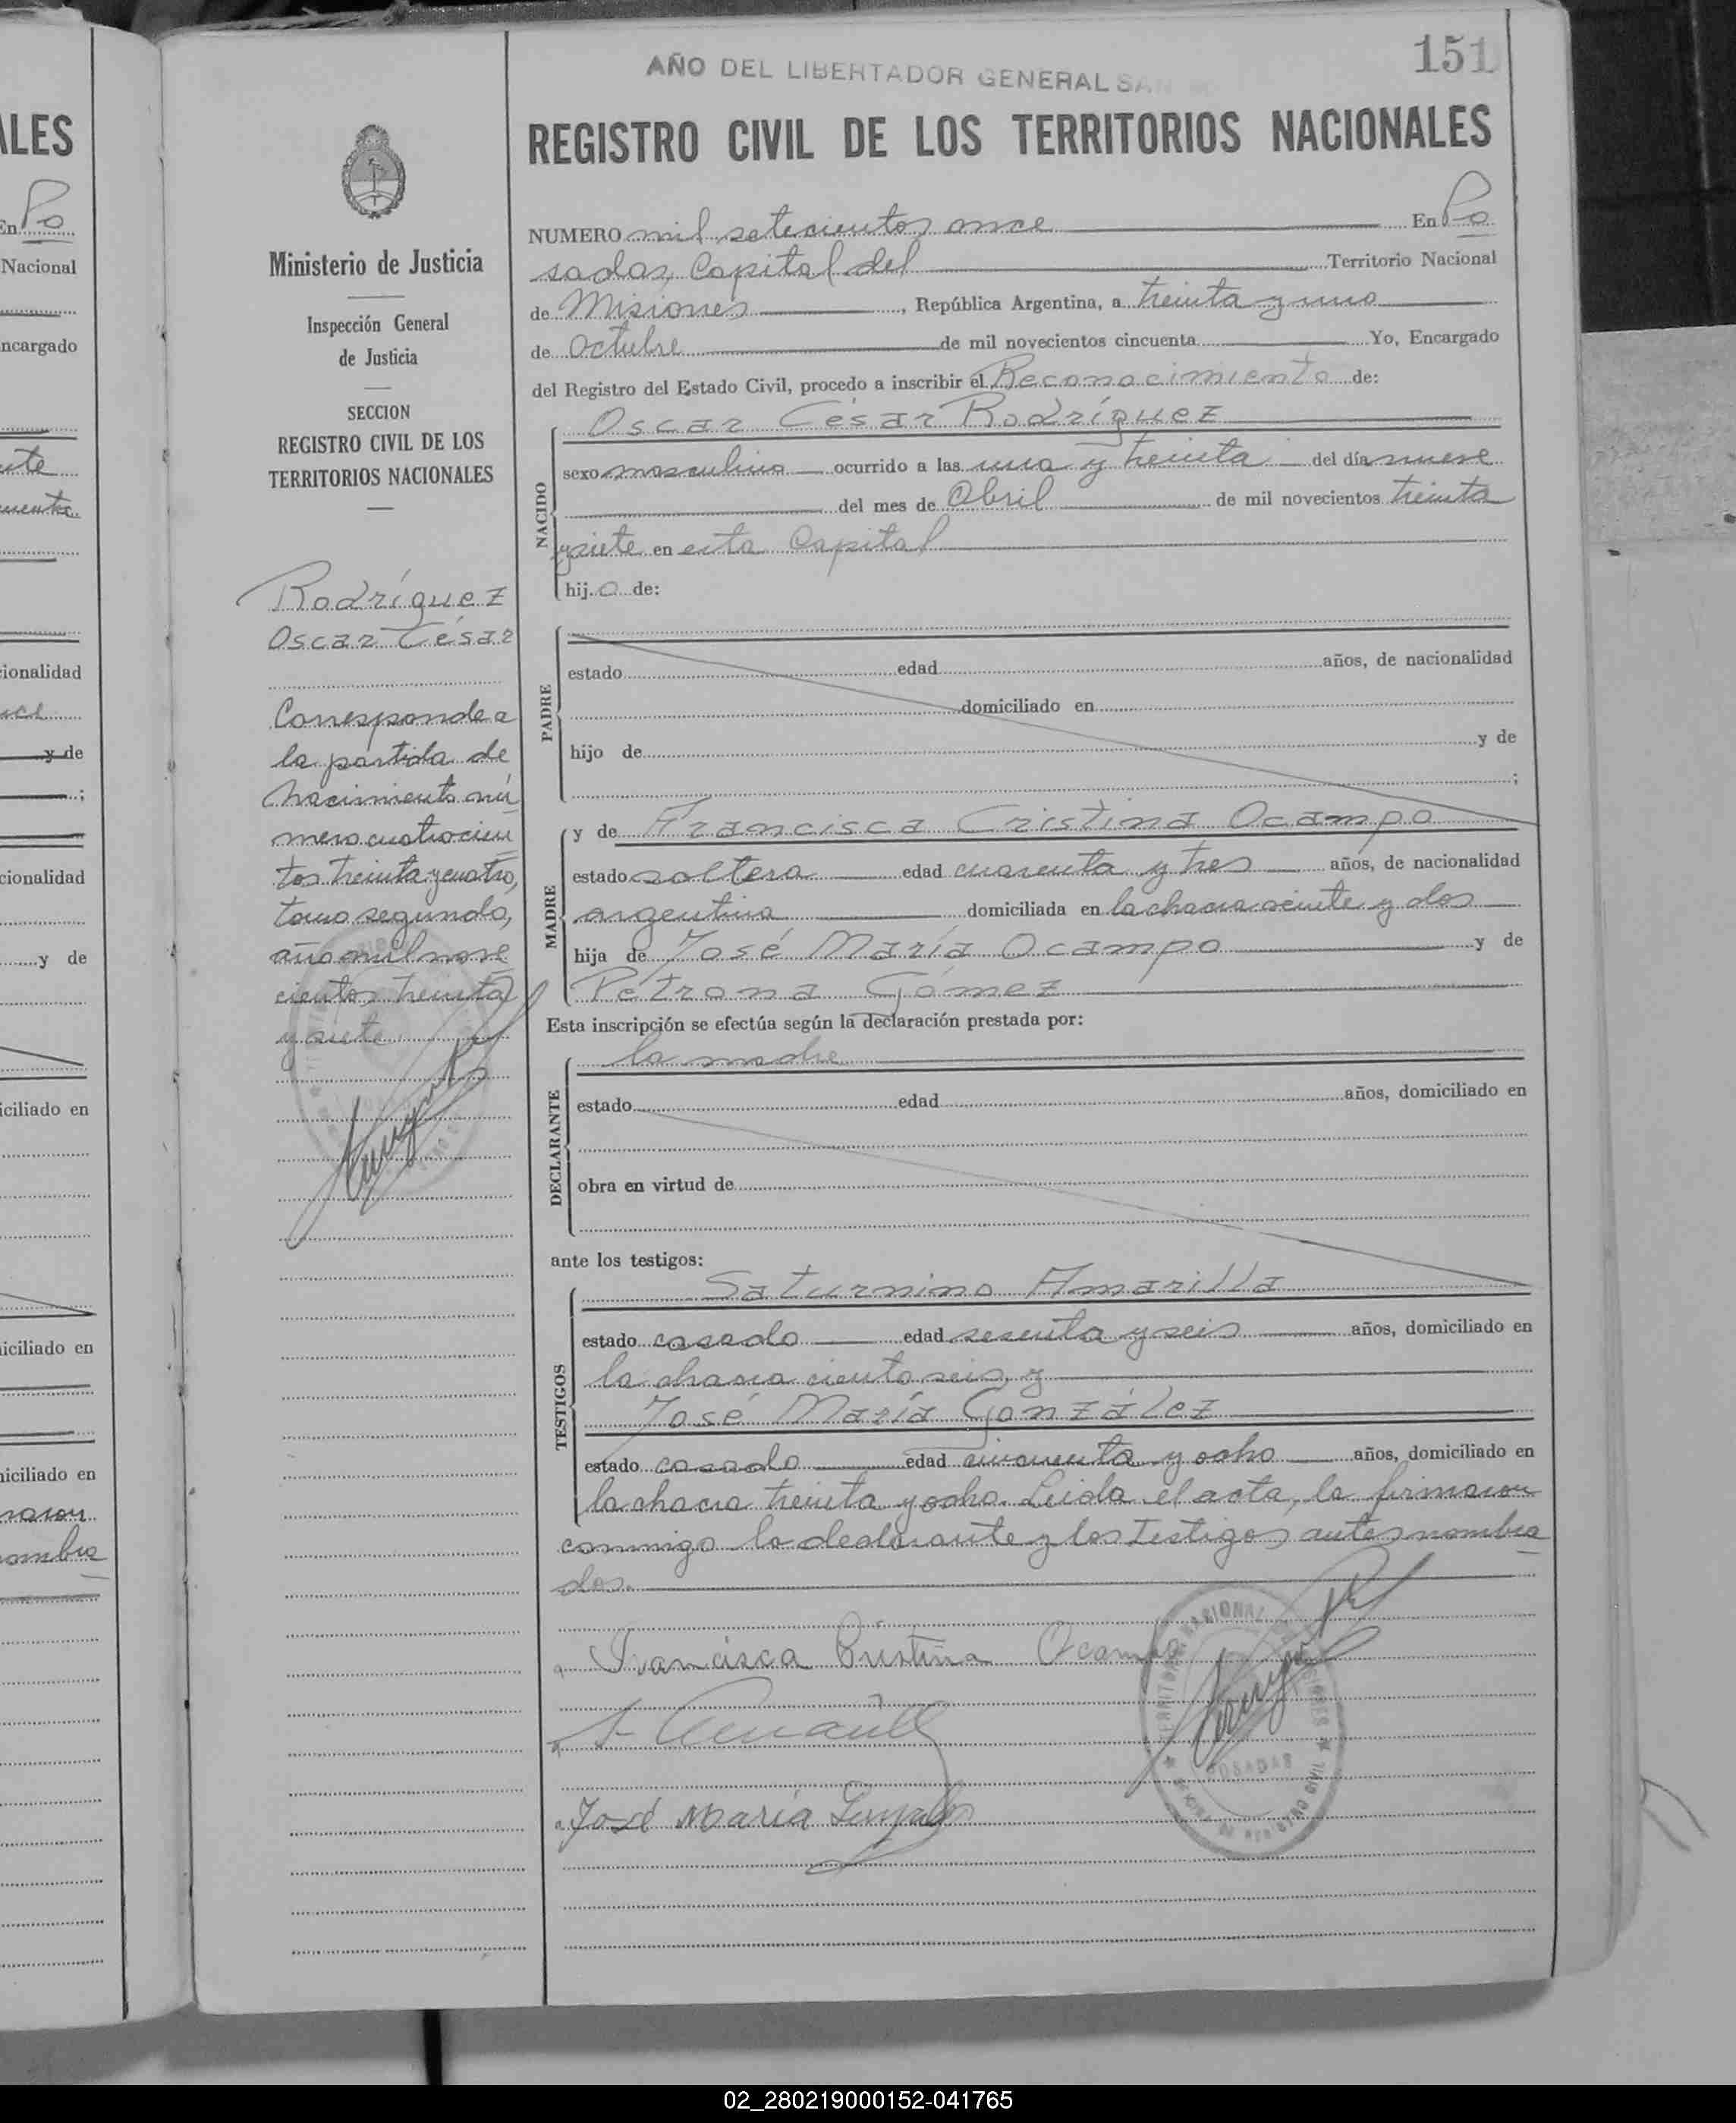 151
AÑO DEL LIBERTADOR GENERAL SAN
REGISTRO CIVIL DE LOS TERRITORIOS NACIONALES
NUMERO mil setecientos once En Po
sadas, Capital del Territorio Nacional
de Misiones, República Argentina, a treinta y uno
de Octubre de mil novecientos cincuenta Yo, Encargado
del Registro del Estado Civil, procedo a inscribir el Reconocimiento de:
NACIDO
Oscar César Rodríguez
sexo masculino ocurrido a las una y treinta del día nueve
del mes de Abril de mil novecientos treinta
y siete en esta Capital
hijo de:
PADRE
estado edad años, de nacionalidad
domiciliado en
hijo de y de
;
MADRE
y de Francisca Cristina Ocampo
estado soltera edad cuarenta y tres años, de nacionalidad
argentina domiciliada en la chacra veinte y dos
hija de José María Ocampo y de
Petrona Gómez
Esta inscripción se efectúa según la declaración prestada por:
DECLARANTE
la madre
estado edad años, domiciliado en
obra en virtud de
ante los testigos:
TESTIGOS
Saturnino Amarilla
estado casado edad sesenta y seis años, domiciliado en
la chacra ciento seis, y
José María González
estado casado edad cincuenta y ocho años, domiciliado en
la chacra treinta y ocho. Leida el acta, la firmaron
conmigo la declarante y los testigos antes nombra
dos.
Francisca Cristina Ocampo
José María Gonzales
TERRITORIO NACIONAL MISIONES
POSADAS
REGISTRO CIVIL
Ministerio de Justicia
Inspección General
de Justicia
SECCION
REGISTRO CIVIL DE LOS
TERRITORIOS NACIONALES
Rodríguez
Oscar César
Corresponde a
la partida de
nacimiento nú
mero cuatrocien
tos treinta y cuatro,
tomo segundo,
año mil nove
cientos treinta
y siete
ALES
En Po
Nacional
ncargado
ionalidad
y de
;
cionalidad
y de
iciliado en
iciliado en
iciliado en
maron
nombra
02_280219000152-041765